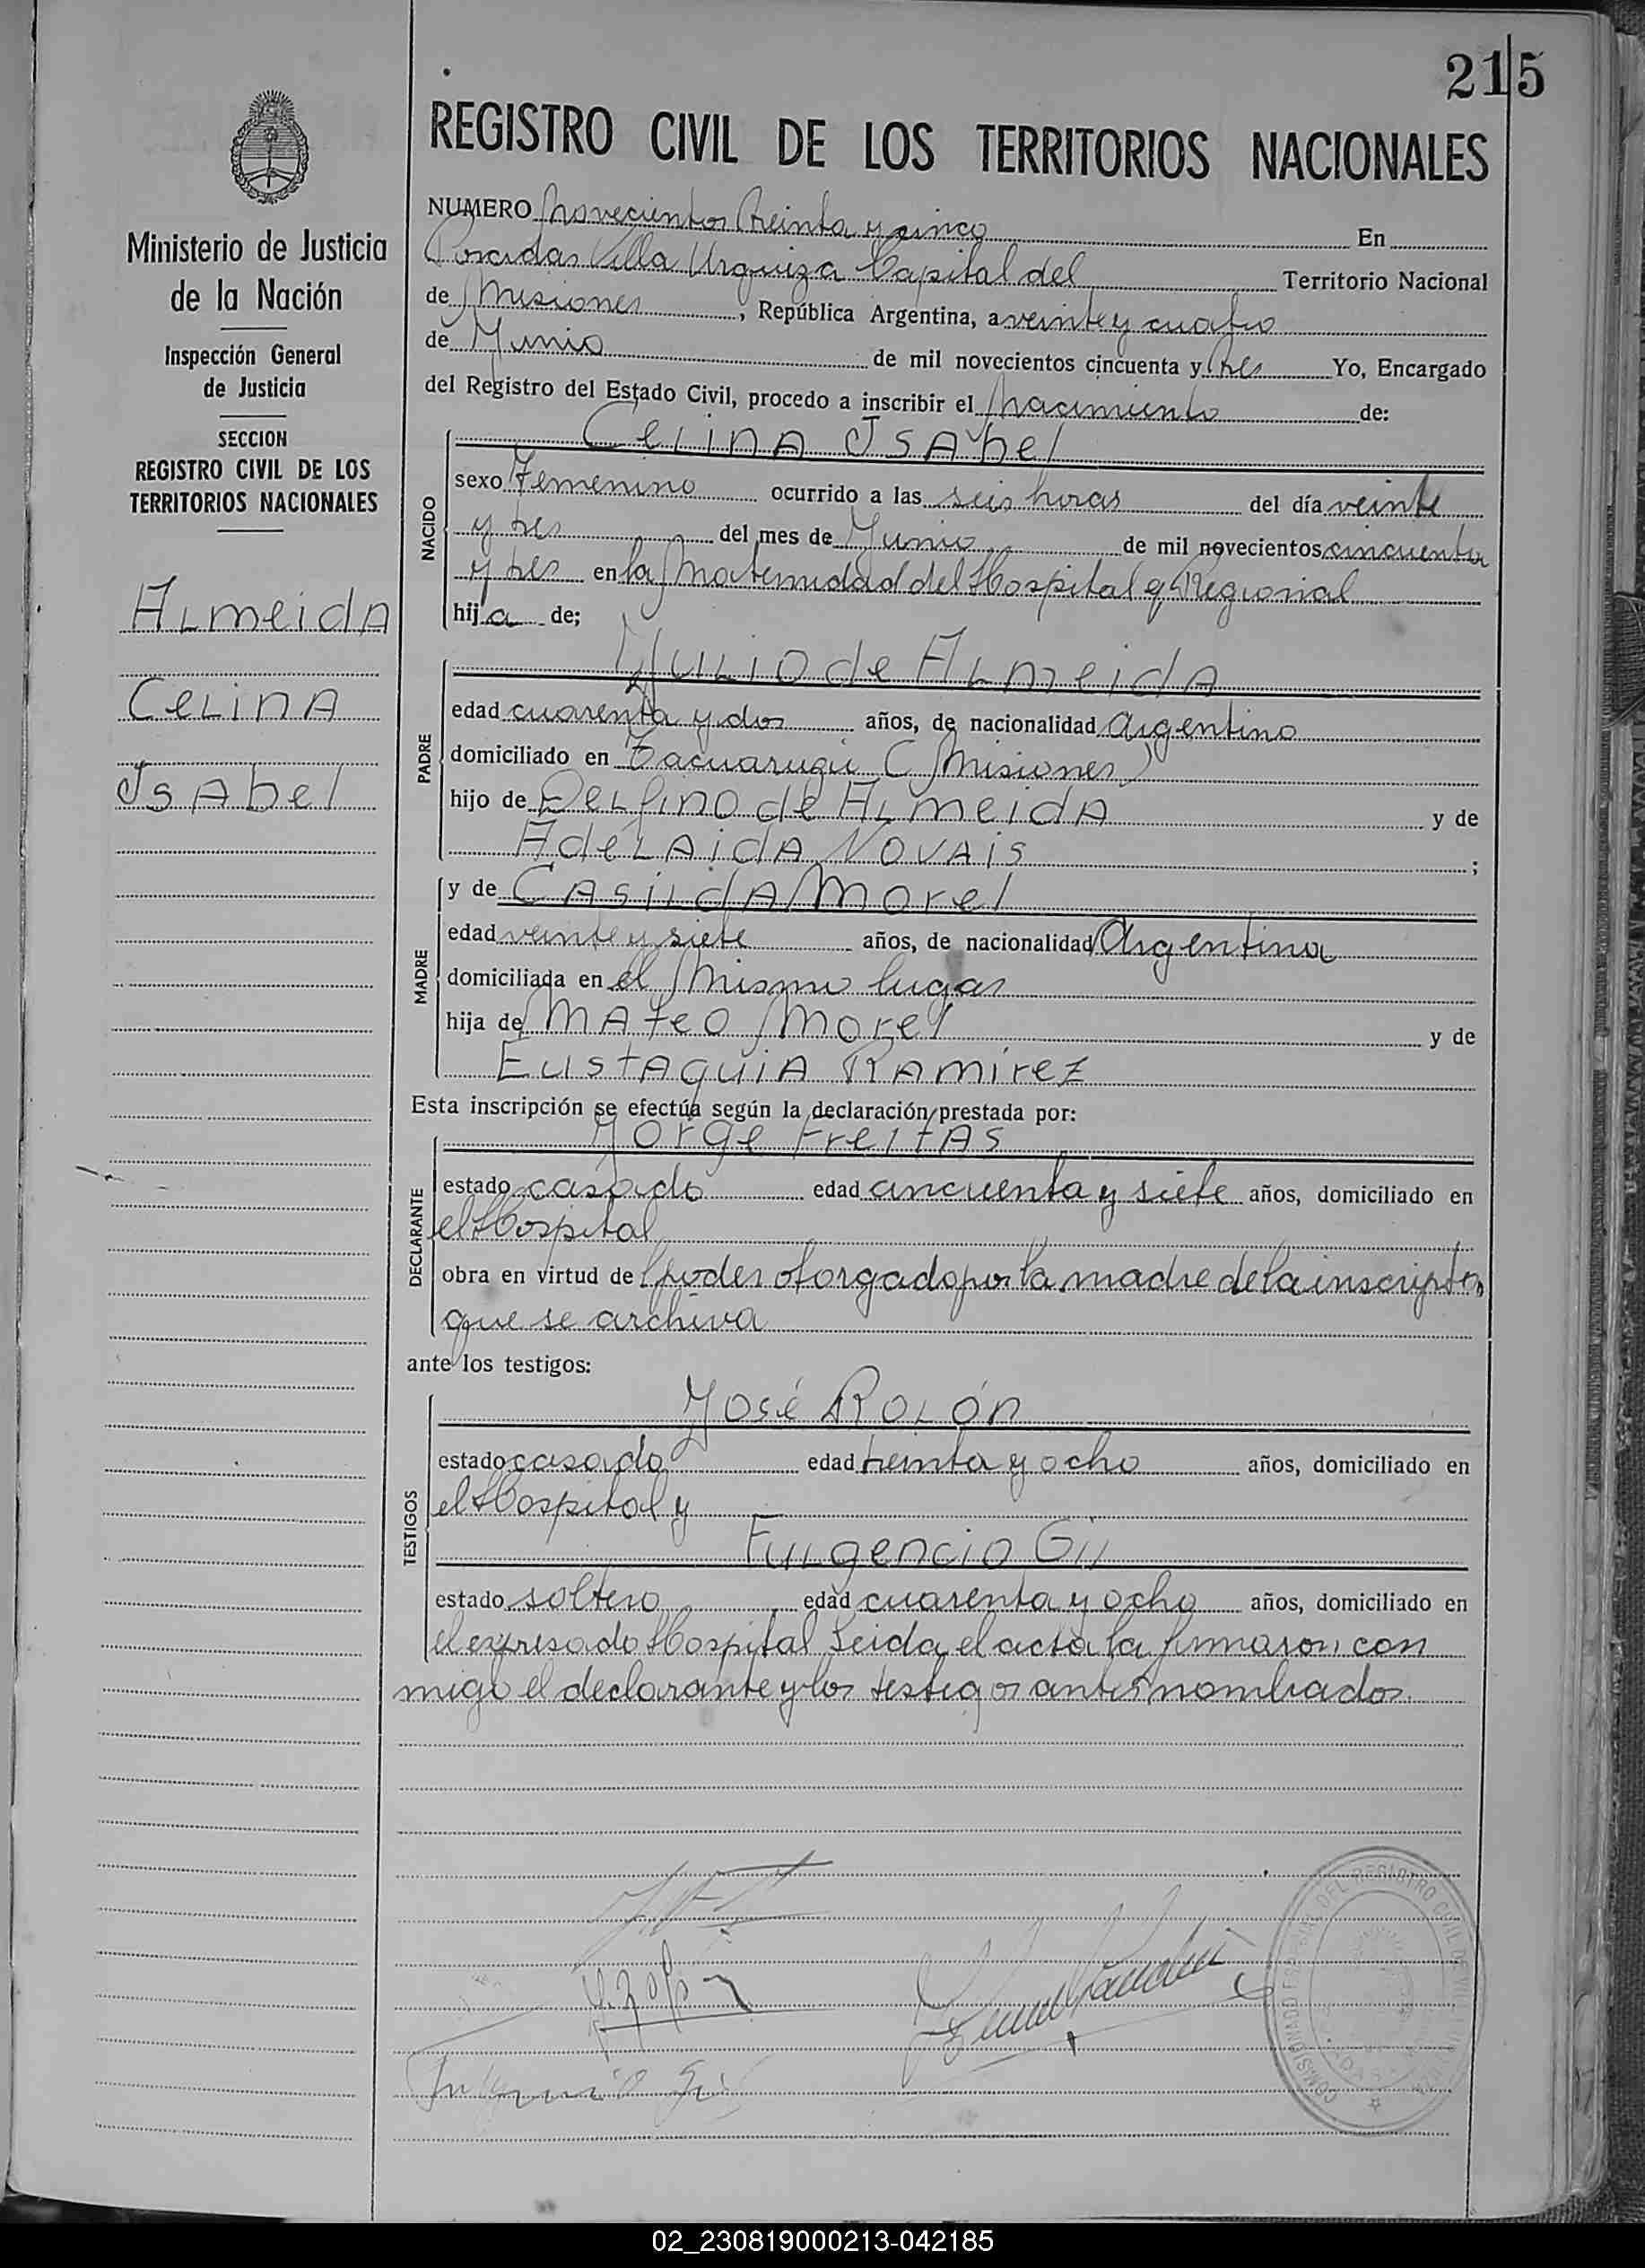 215
REGISTRO CIVIL DE LOS TERRITORIOS NACIONALES
Ministerio de Justicia
de la Nación
Inspección General
de Justicia
SECCION
REGISTRO CIVIL DE LOS
TERRITORIOS NACIONALES
Almeida
Celina
Isabel
NUMERO Novecientos treinta y cinco En
Posadas Villa Urquiza Capital del Territorio Nacional
de Misiones, República Argentina, a veinte y cuatro
de Junio de mil novecientos cincuenta y tres Yo, Encargado
del Registro del Estado Civil, procedo a inscribir el Nacimiento de:
NACIDO
Celina Isabel
sexo Femenino ocurrido a las seis horas del día veinte
y tres del mes de Junio de mil novecientos cincuenta
y tres en la Maternidad del Hospital g. Regional
hija de;
PADRE
Julio de Almeida
edad cuarenta y dos años, de nacionalidad Argentino
domiciliado en Tacuarugú (Misiones)
hijo de Delfino de Almeida y de
Adelaida Novais ;
MADRE
y de Casilda Morel
edad veinte y siete años, de nacionalidad Argentina
domiciliada en el mismo lugar
hija de Mateo Morel y de
Eustaquia Ramirez
Esta inscripción se efectúa según la declaración prestada por:
DECLARANTE
Jorge Freitas
estado casado edad cincuenta y siete años, domiciliado en
el Hospital
obra en virtud de poder otorgado por la madre de la inscripta,
que se archiva
ante los testigos:
TESTIGOS
José Rolón
estado casado edad treinta y ocho años, domiciliado en
el Hospital y
Fulgencio Gil
estado soltero edad cuarenta y ocho años, domiciliado en
el expresado Hospital Leida el acta la firmaron con
migo el declarante y los testigos antes nombrados.
Fulgencio Gil
02_230819000213-042185